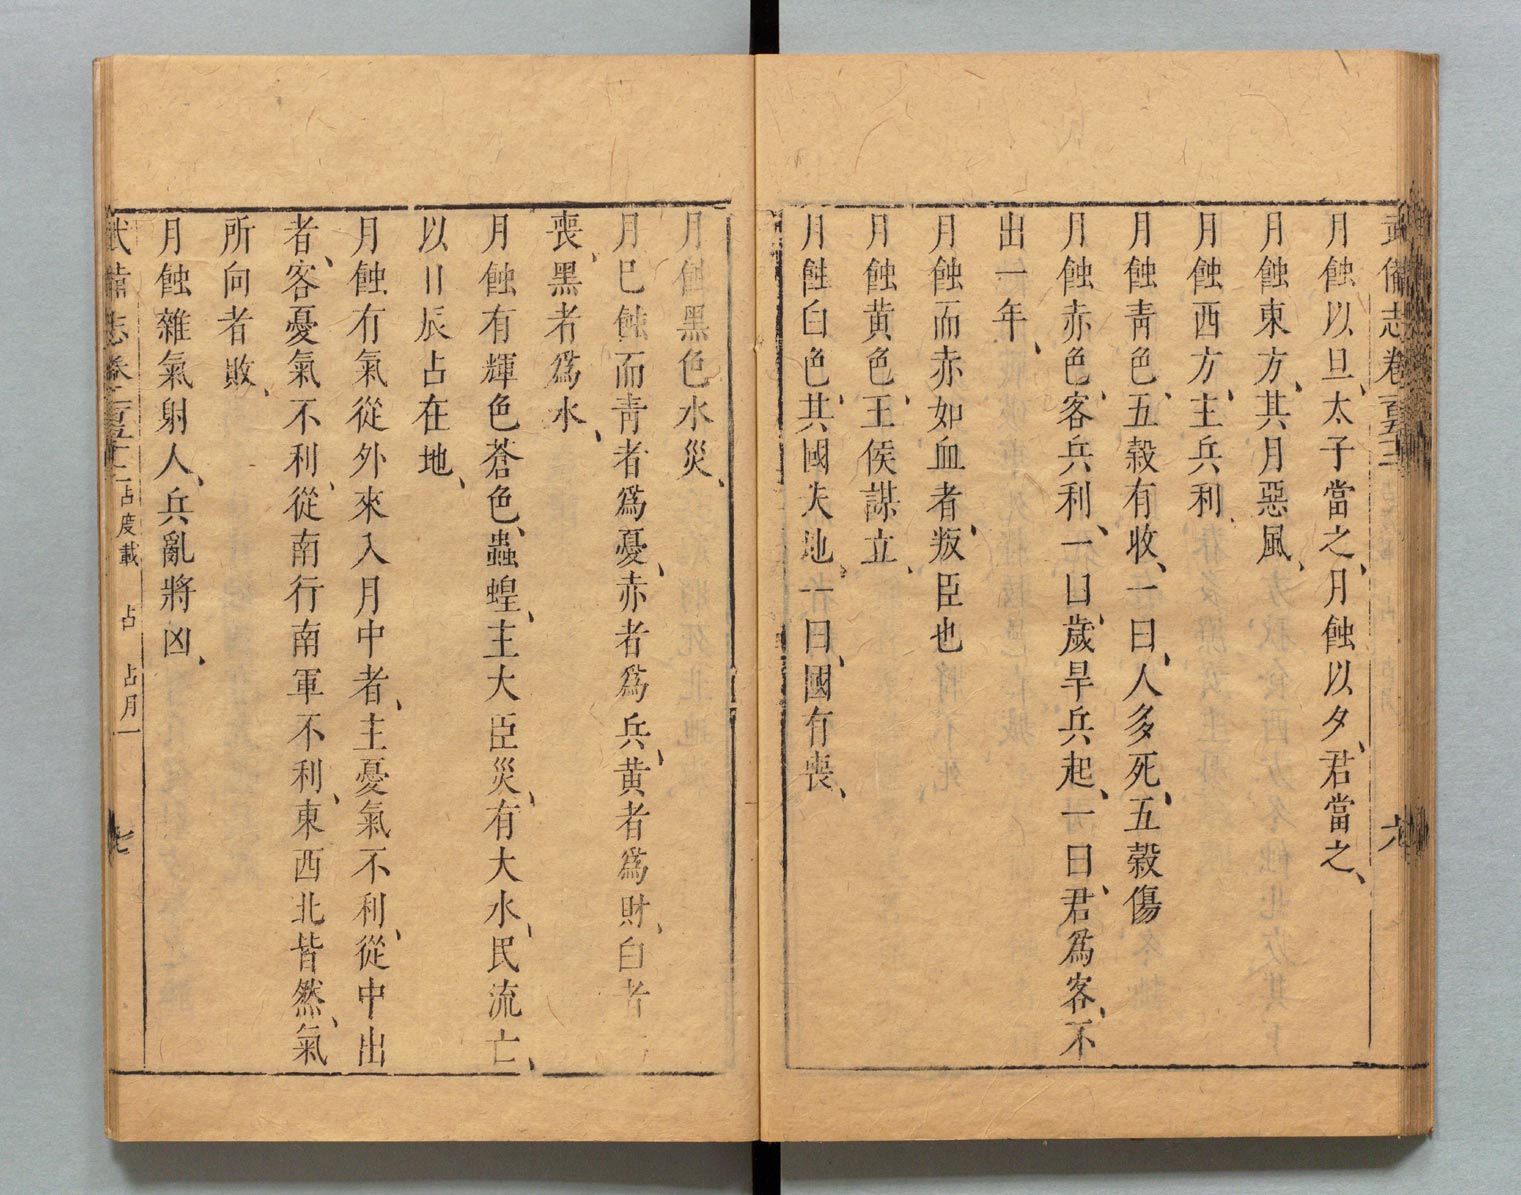 武備志卷 六
月蝕以旦、太子當之、月蝕以夕、君當之、
月蝕東方、其月惡風、
月蝕西方、主兵利、
月蝕青色、五穀有收、一曰、人多死、五穀傷
月蝕赤色、客兵利、一曰、歲旱兵起、一曰、君爲客、不
出一年、
月蝕而赤如血者、叛臣也
月蝕黃色、王侯謀立、
月蝕白色、其國失地、一曰、國有喪、
月蝕黑色水災、
月巳蝕而青者爲憂、赤者爲兵、黃者爲財、白者
喪、黑者爲水、
月蝕有輝色蒼色、蟲蝗、主大臣災、有大水、民流亡、
以日辰占在地、
月蝕有氣從外來入月中者、主憂氣不利、從中出
者、客憂氣不利、從南行南軍不利、東西北皆然、氣
所向者敗、
月蝕雜氣射人、兵亂將凶、
武備志卷 占度載 占 占月一 七